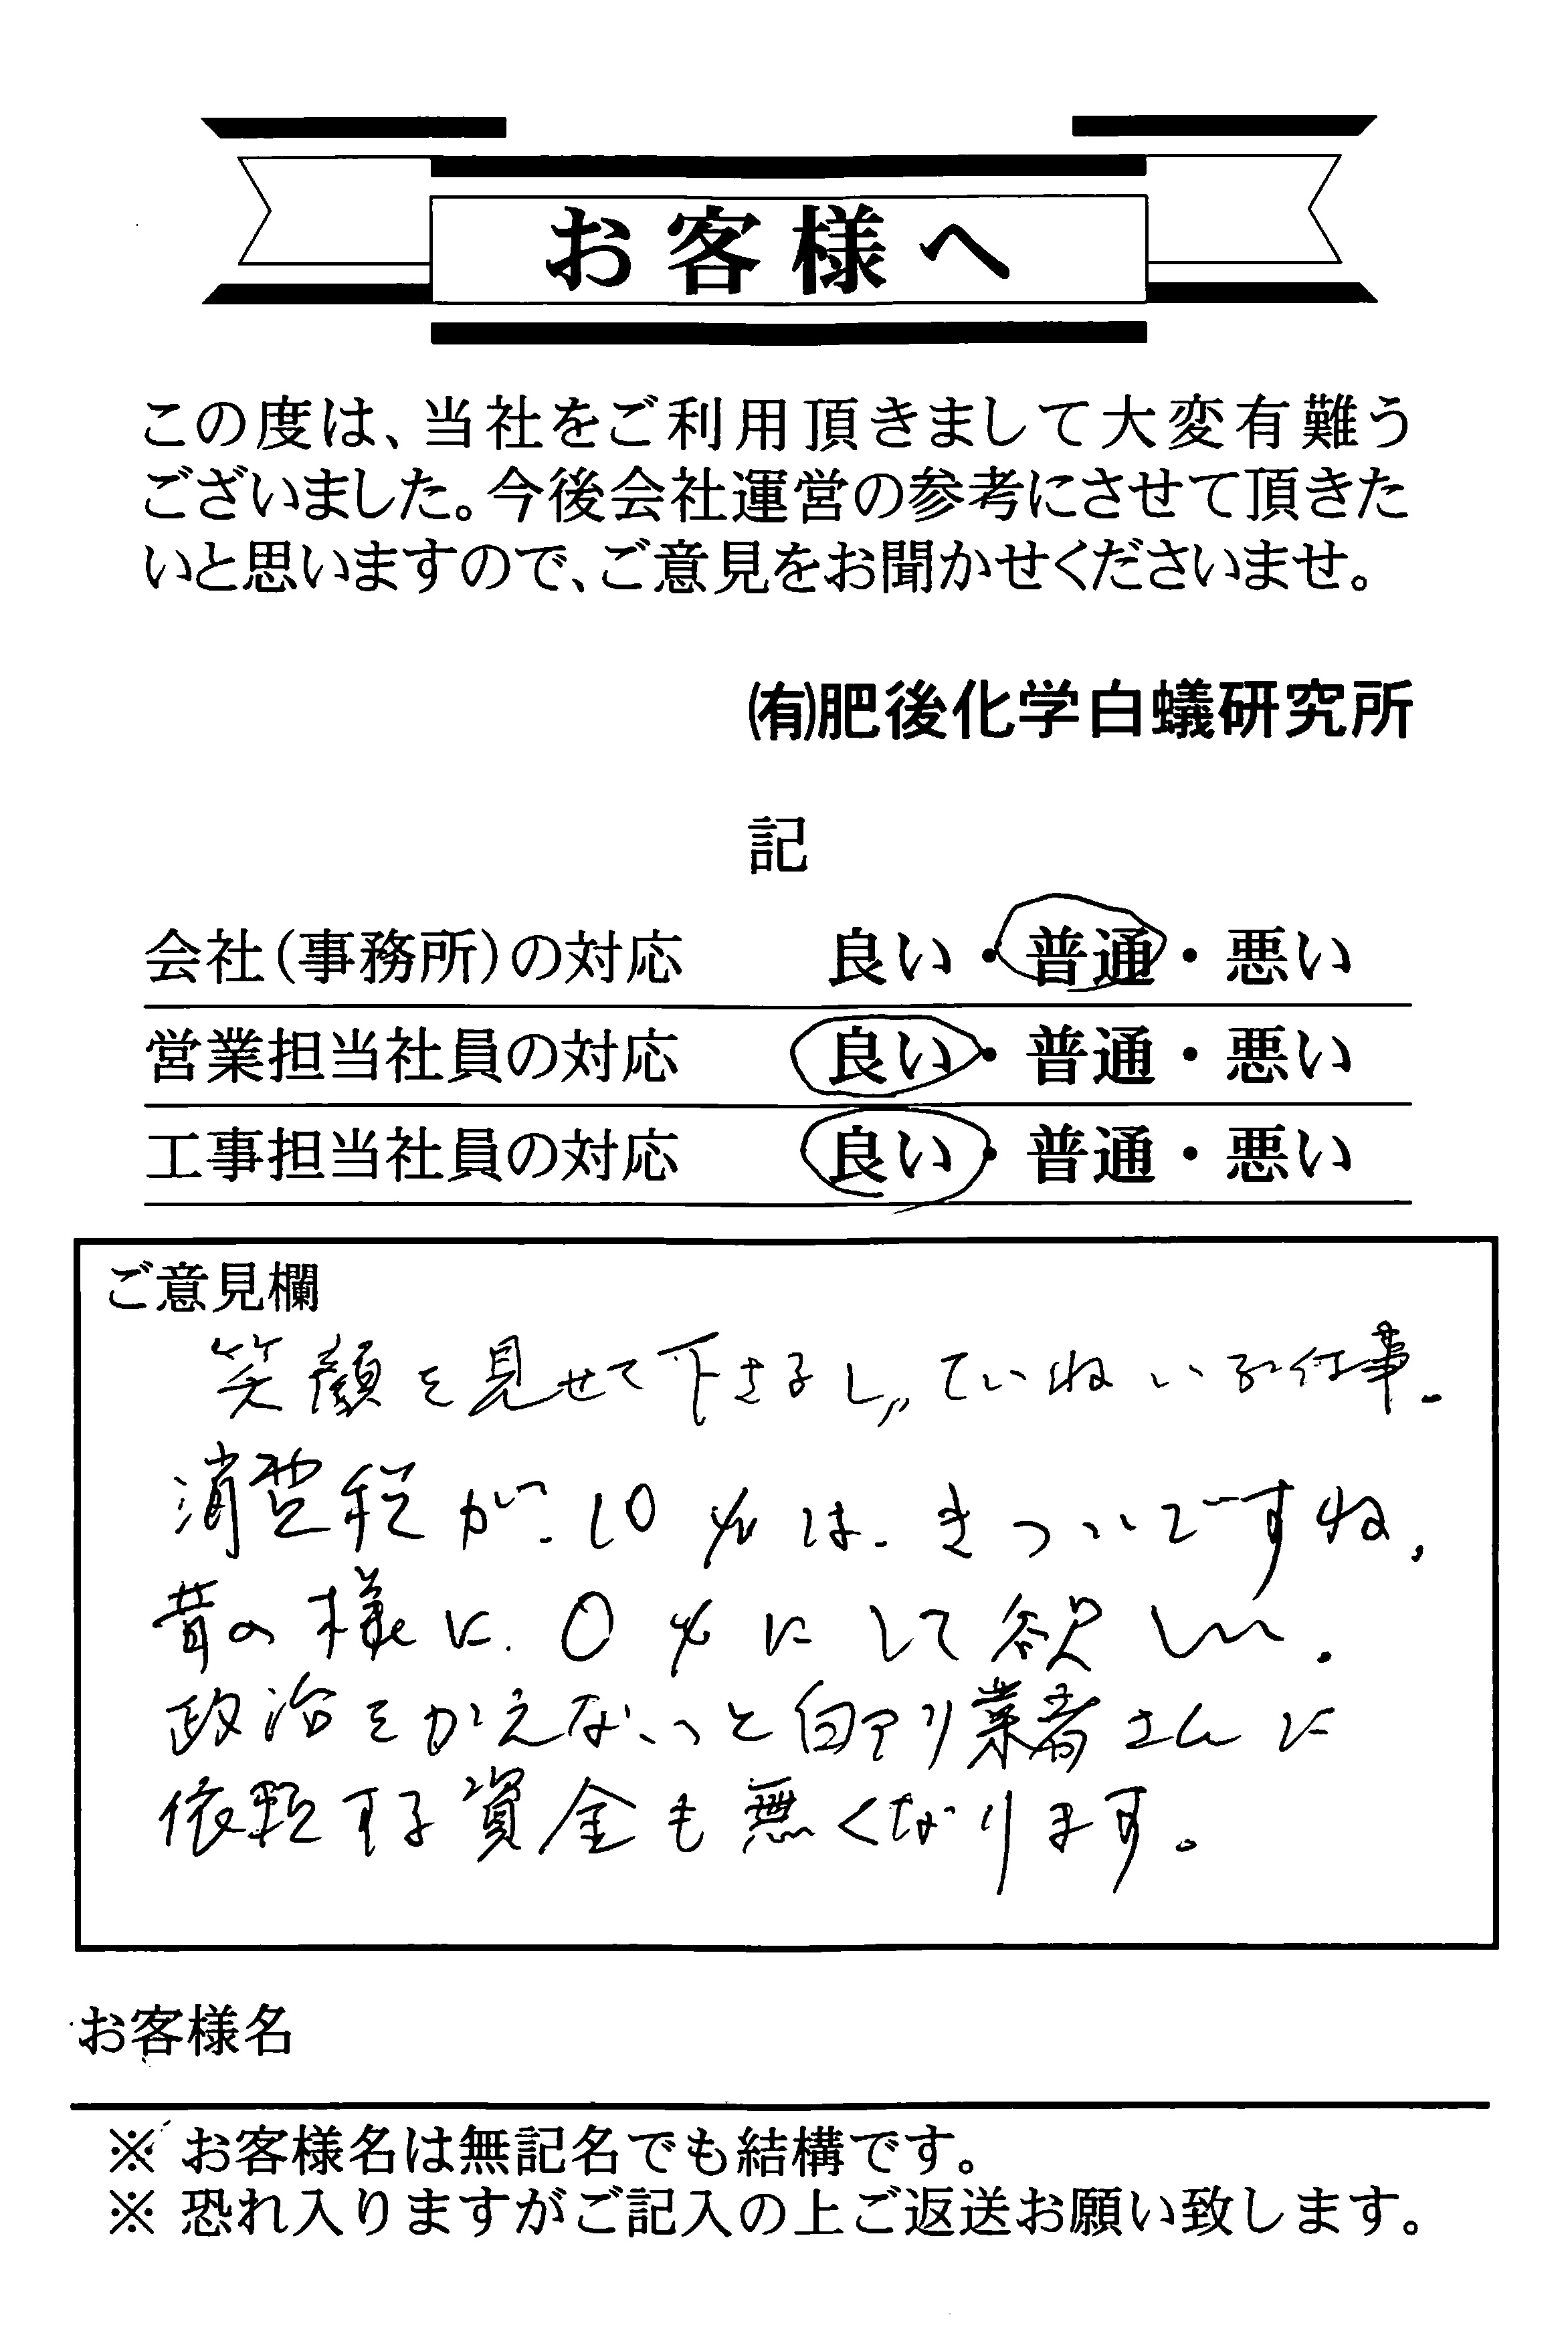 お客様へ
この度は、当社をご利用頂きまして大変有難う
ございました。今後会社運営の参考にさせて頂きた
いと思いますので、ご意見をお聞かせくださいませ。
㈲肥後化学白蟻研究所
記
会社(事務所)の対応 良い・普通・悪い
営業担当社員の対応 良い・普通・悪い
工事担当社員の対応 良い・普通・悪い
ご意見欄
笑顔を見せて下さるし、ていねいな仕事.
消費税が.10%は.きついですね,
昔の様に.0%にして欲しい.
政治をかえないっと白アリ業者さんに
依頼する資金も無くなります。
お客様名
※ お客様名は無記名でも結構です。
※ 恐れ入りますがご記入の上ご返送お願い致します。